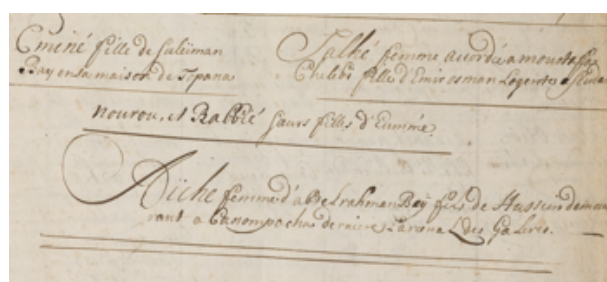 Eminé fille de suleïman
Bay en sa maison de Topana
Salhé femme acordée a moustafa
Chelebi fille d'Emir osman Logente a
nourou, et Rabbié sœurs filles d'Eummé.
Aïche femme d'abdelrahman Bey fils de Hussein demeu
rant a Cassompacha derriere Larcenal des Galeres.